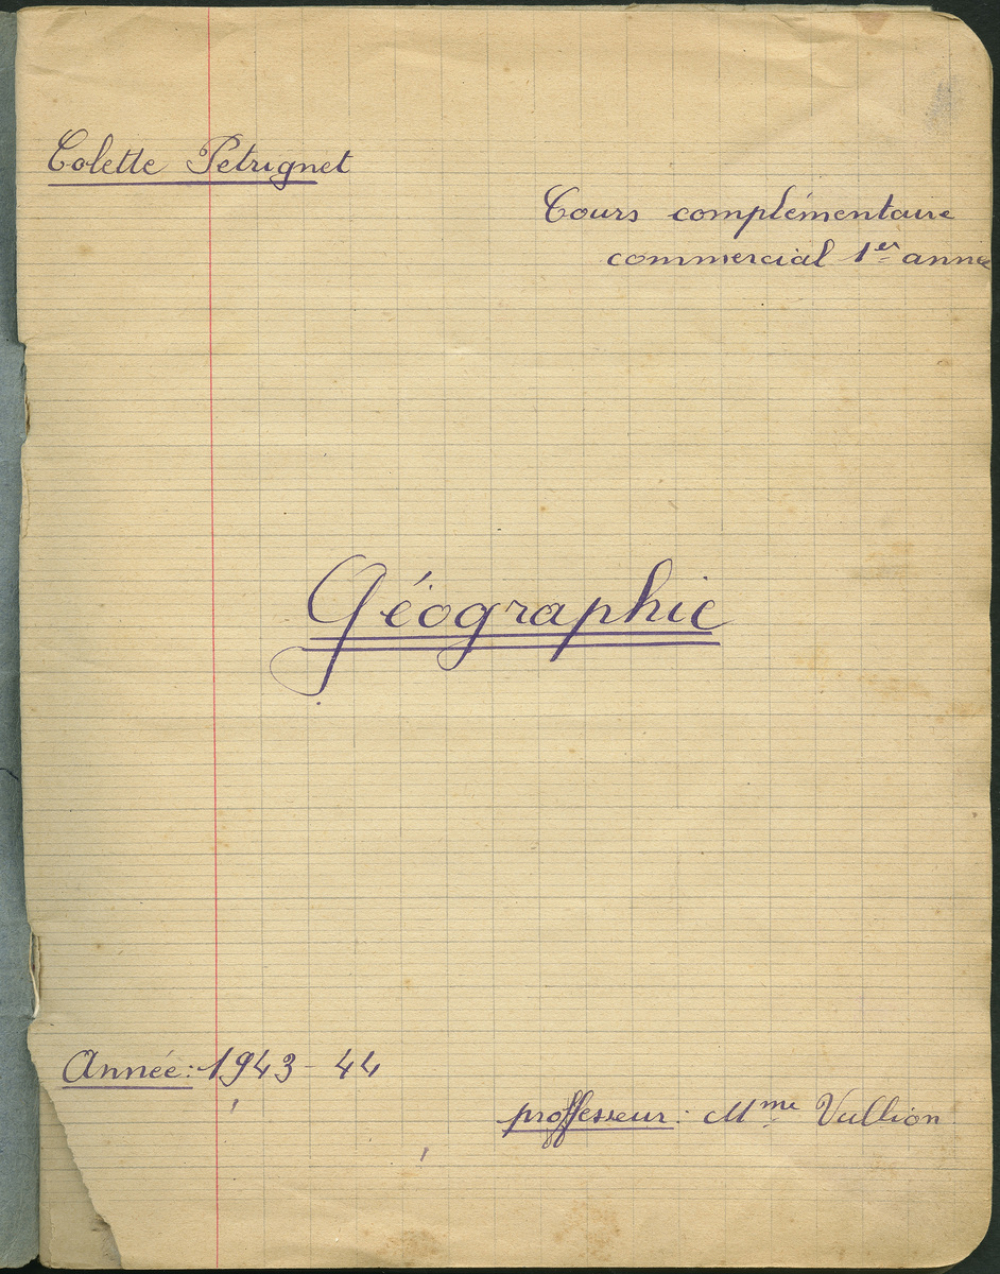 Colette Petrignet
Cours complémentaire
commercial 1er année
Géographie
Année: 1943-44
proffesseur: Mme Vullion